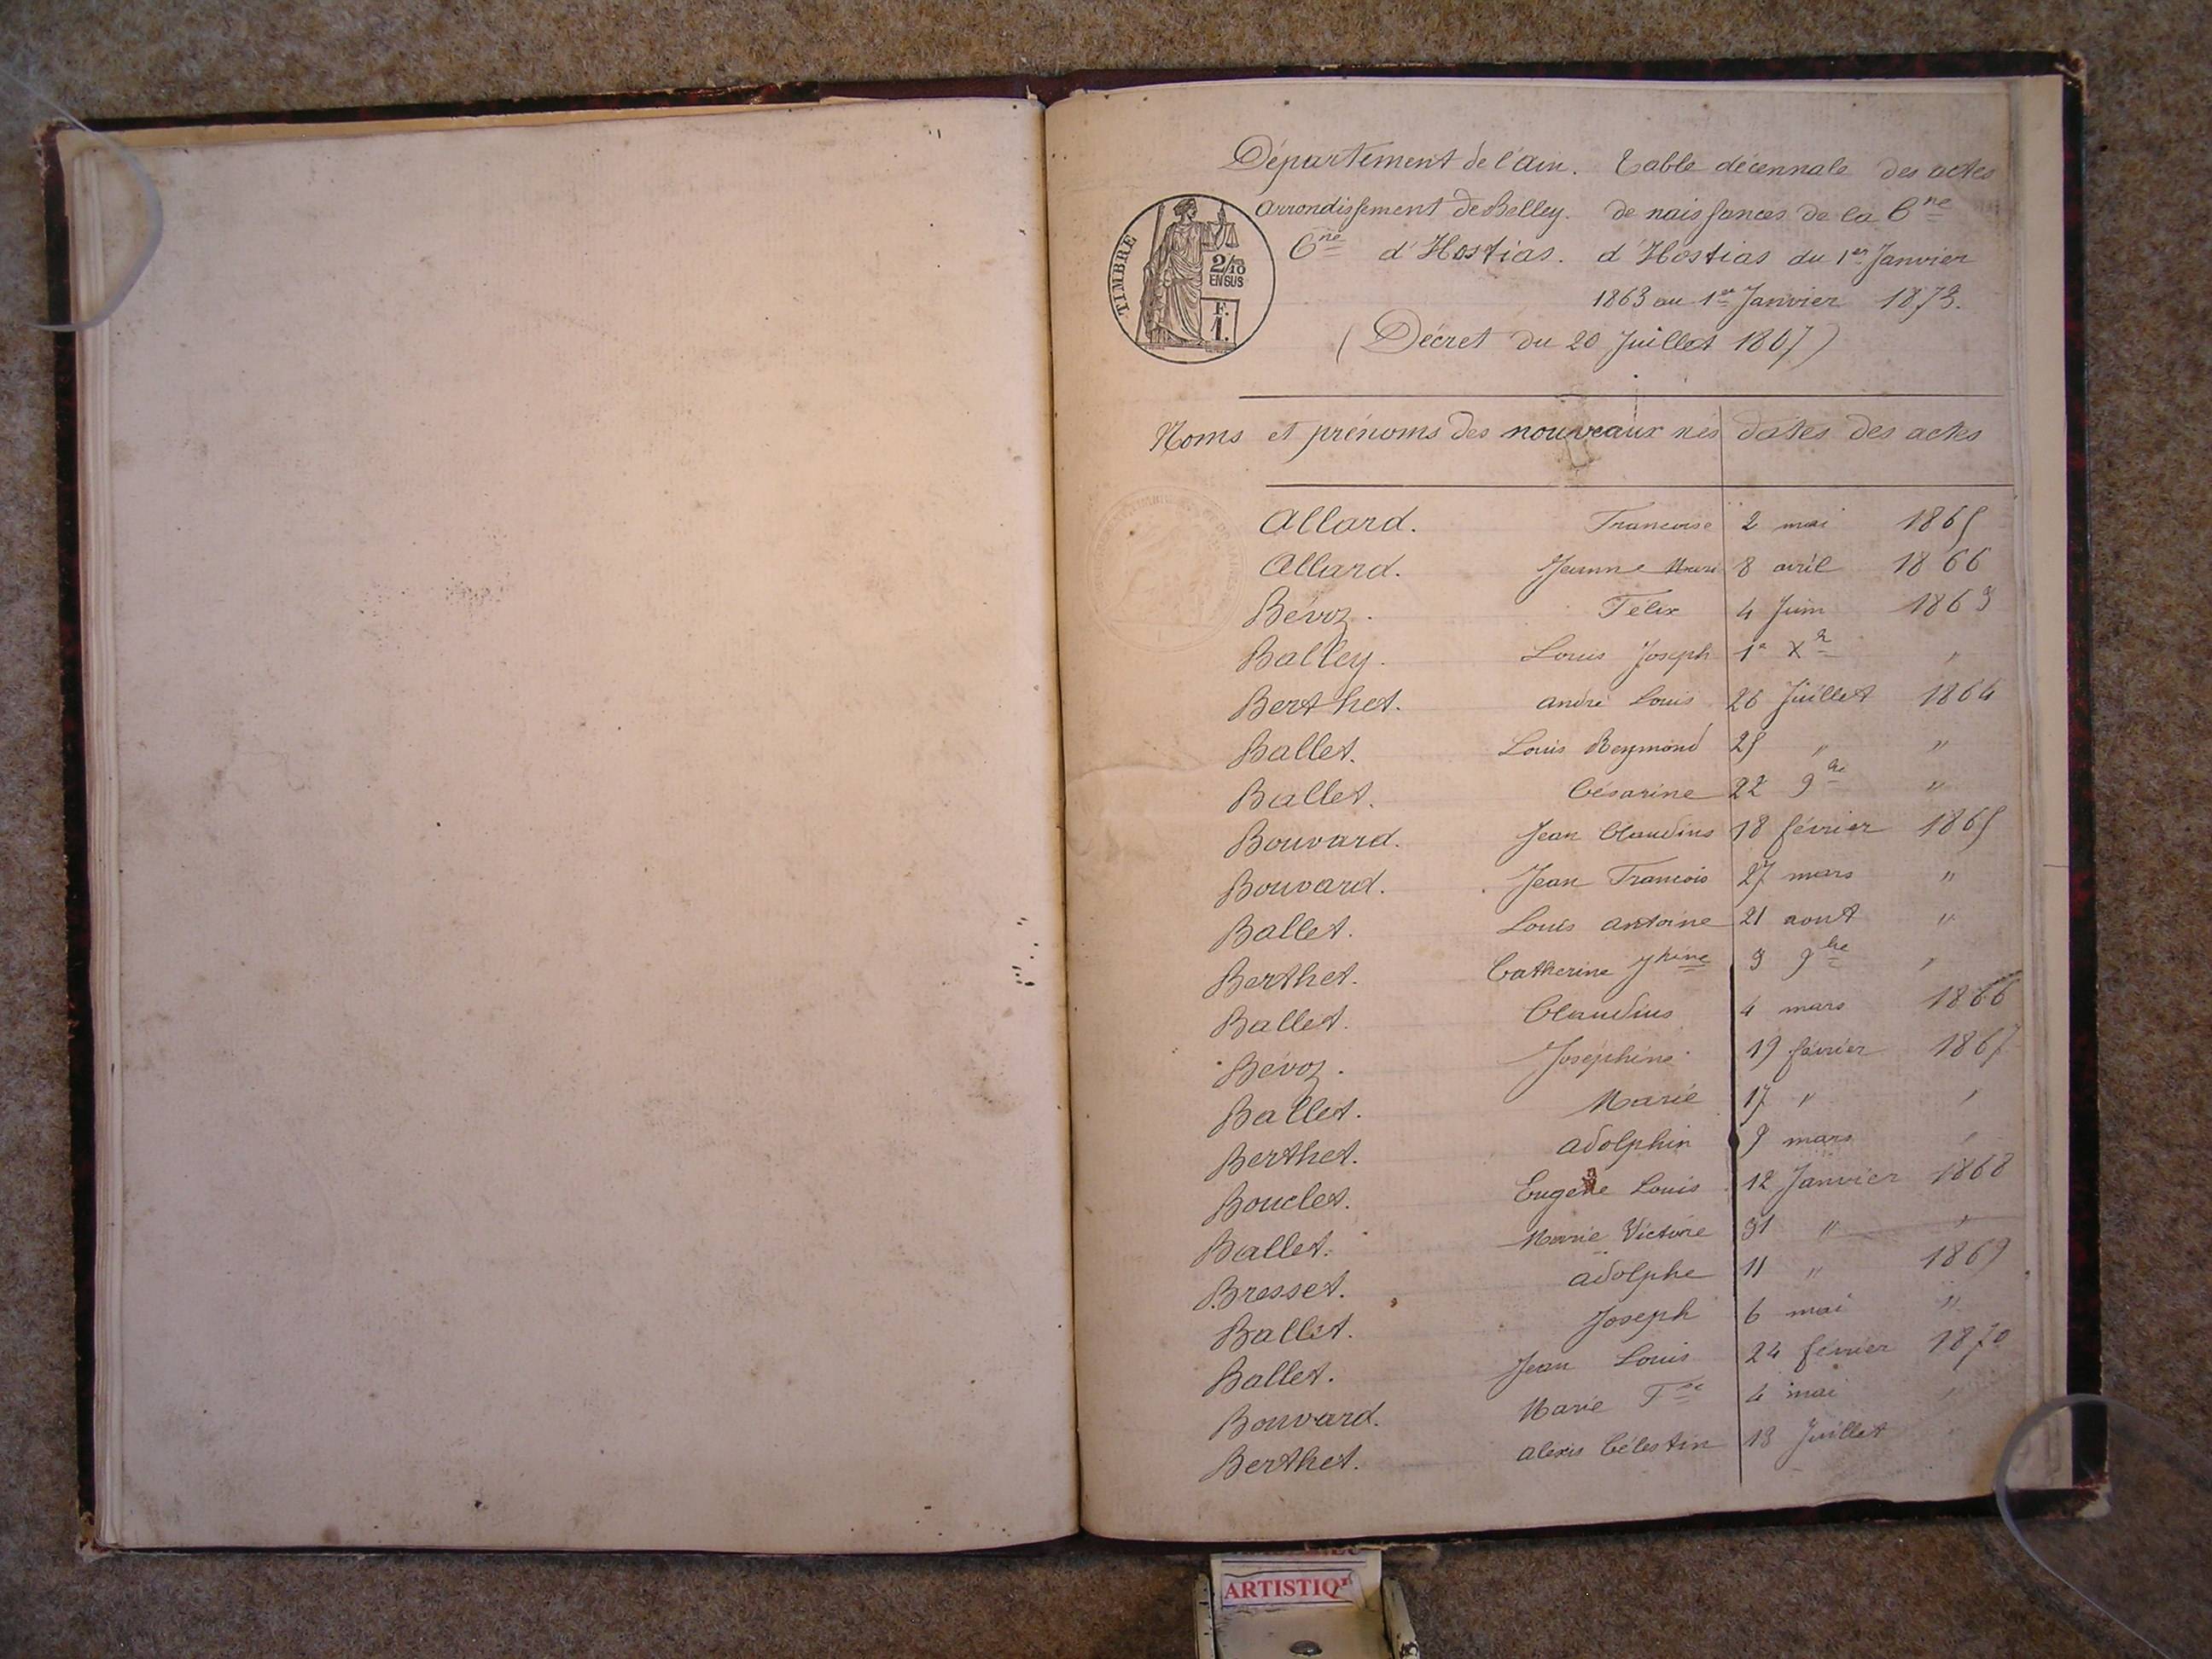 Département de l'ain. Table décennale des actes
Arrondissement de Belley. de naissances de la Cne
Cne d'Hostias. d'Hostias du 1er Janvier
1863 au 1er Janvier 1873.
(Décret du 20 Juillet 1807)
TIMBRE
2/10
EN SUS
F.
1.
Noms et prénoms des nouveaux nés dates des actes
Allard. Francoise 2 mai 1865
Allard. Jeanne Marie 8 avril 1866
Bévoz. Félix 4 Juin 1863
Balley. Louis Joseph 1er Xre "
Berthet. André Louis 26 Juillet 1864
Ballet. Louis Reymond 25 " "
Ballet. Césarine 22 9bre "
Bouvard. Jean Claudius 18 février 1865
Bouvard. Jean Francois 27 mars "
Ballet. Louis Antoine 21 aout "
Berthet. Catherine Jphine 3 9bre "
Ballet. Claudius 4 mars 1866
Bévoz. Joséphine 19 février 1867
Ballet. Marie 17 " "
Berthet. Adolphin 9 mars "
Bouclet. Eugène Louis 12 Janvier 1868
Ballet. Marie Victoire 31 " "
Bresset. Adolphe 11 " 1869
Ballet. Joseph 6 mai "
Ballet. Jean Louis 24 février 1870
Bouvard. Marie Fse 4 mai "
Berthet. Alexis Célestin 13 Juillet "
ARTISTIQ